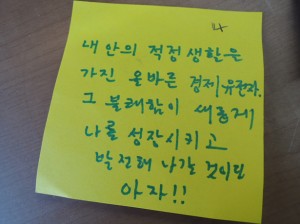 내 안의 적정생활은
가진 올바른 경제유권자.
그 불쾌함이 새롭게
나를 성장시키고
발전해 나갈 것이며
아자!!